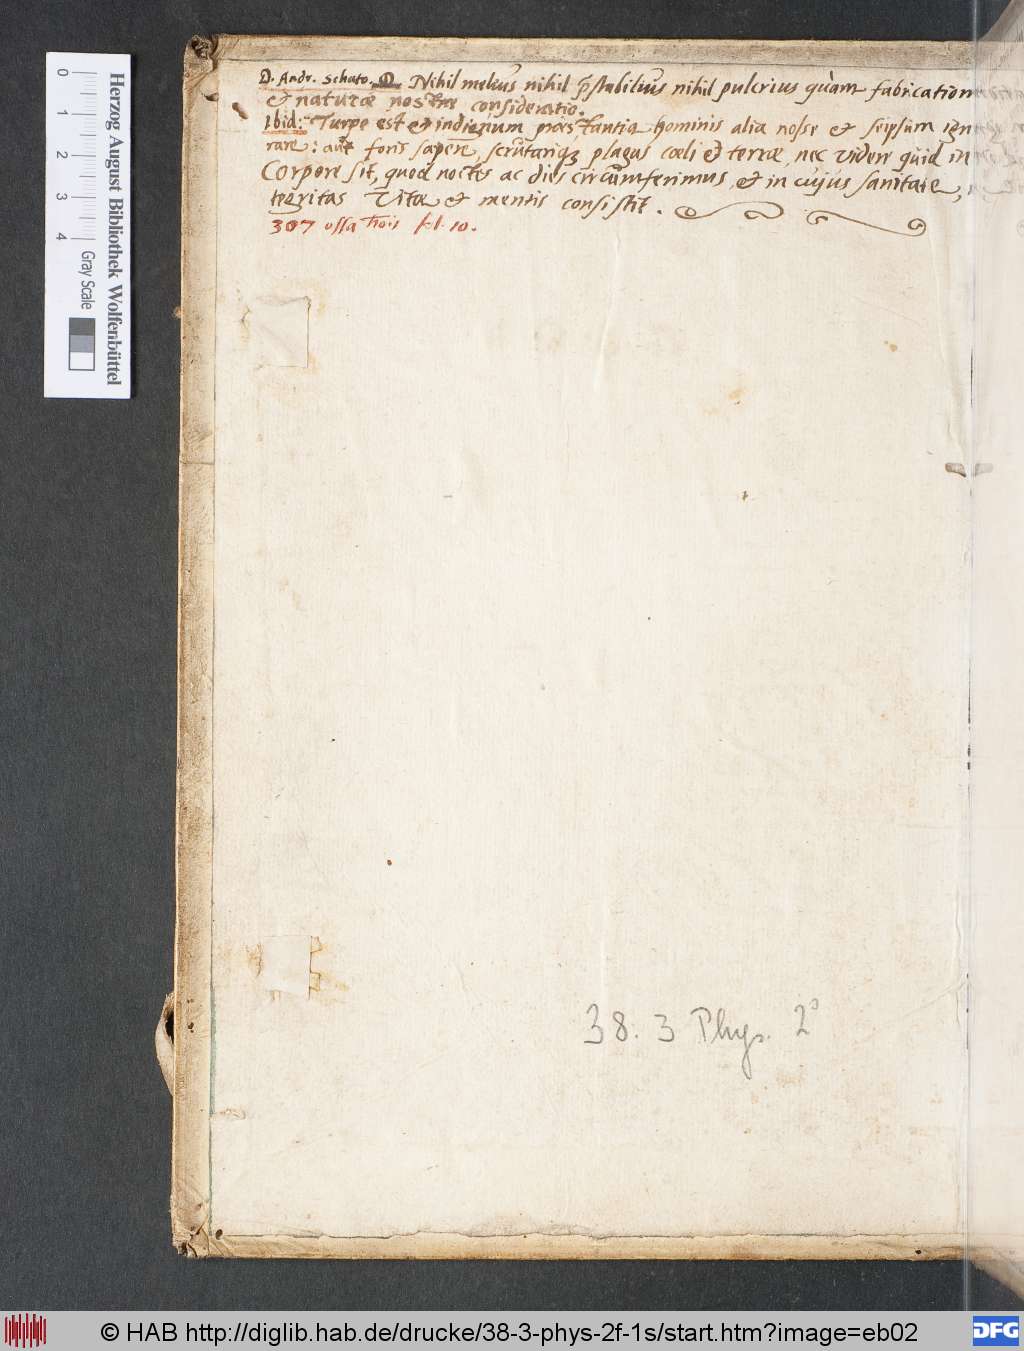 D. Andr. Schato. Nihil melius nihil p̃stabilius nihil pulcrius quàm fabrication
et naturæ nostræ consideratio.
Ibid: Turpe est et indignum præstantia hominis alia nosse et seipsum ign
rare: aut foris sapere, scrutariq; plagas cœli et terræ, nec videre quid in
Corpore sit, quod noctes ac dies circumferimus, et in cujus sanitate,
Vitæ et mentis consistit.
307 ossa hõis fol. 10.
38. 3 Phys. 2°
Herzog August Bibliothek Wolfenbüttel
0 1 2 3 4 Gray Scale
© HAB http://diglib.hab.de/drucke/38-3-phys-2f-1s/start.htm?image=eb02
DFG